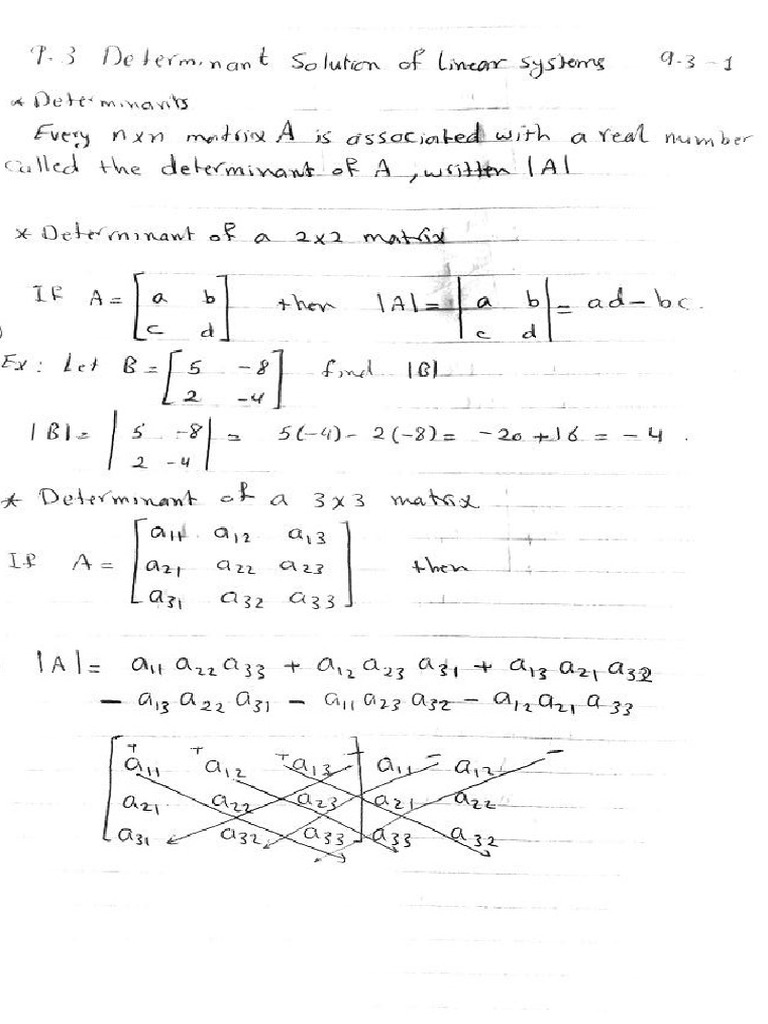 9.3 Determinant Solution of Linear systems 9-3-1
* Determinants
Every n×n matrix A is associated with a real number
called the determinant of A, written |A|
* Determinant of a 2×2 matrix
If A = [a b; c d] then |A| = |a b; c d| = ad - bc.
Ex: Let B = [5 -8; 2 -4] find |B|
|B| = |5 -8; 2 -4| = 5(-4) - 2(-8) = -20 + 16 = -4.
* Determinant of a 3×3 matrix
If A = [a11 a12 a13; a21 a22 a23; a31 a32 a33] then
|A| = a11 a22 a33 + a12 a23 a31 + a13 a21 a32
- a13 a22 a31 - a11 a23 a32 - a12 a21 a33
+ + + - - -
a11 a12 a13 a11 a12
a21 a22 a23 a21 a22
a31 a32 a33 a33 a32